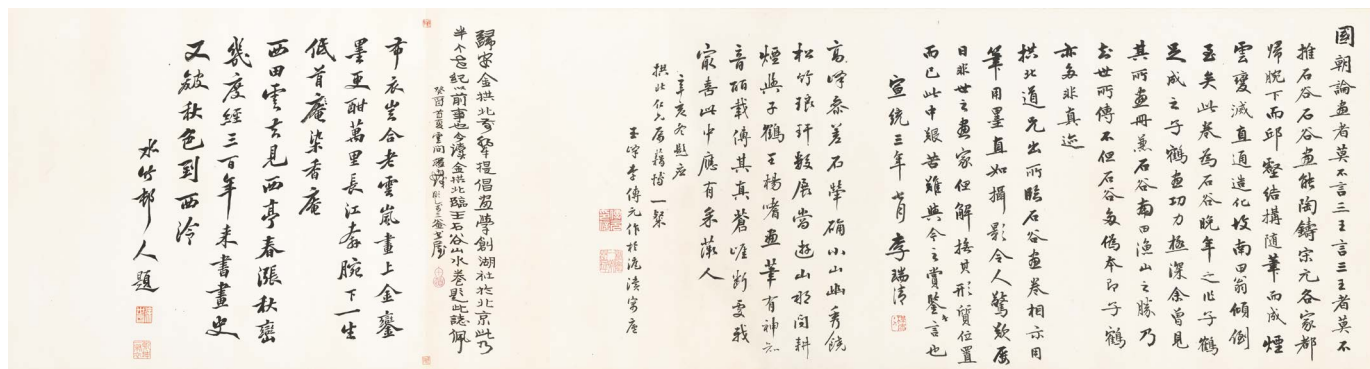 國朝論畫者莫不言三王言三王者莫不
推石谷石谷畫能陶鑄宋元各家都
歸腕下而邱壑結構隨筆而成煙
雲變滅直通造化故南田翁傾倒
至矣此卷為石谷晚年之作子鶴
足成之子鶴畫功力極深余曾見
其所畫冊兼石谷南田漁山之勝乃
知世所傳不但石谷多偽本即子鶴
亦多非真迹
拱北道兄出所臨石谷畫卷相示用
筆用墨直如攝影令人驚歎屈
日非世之畫家但解橅其形質位置
而已此中艱苦難與今之賞鑒言也
宣統三年七月 李瑞清
高峰參差石犖确小山幽秀饒
松竹琅玕數展當遊山那問耕
煙與子鶴王楊嗜畫筆有神知
音酷載傳其真蒼崖斷雯我
最喜此中應有采藥人
辛亥冬題應
拱北仁六屬藉博一粲
玉峰李傳元作於滬瀆寓廬
歸安金拱北
提倡畫學創湖社於北京此乃
半个世紀以前事也今讀金拱北臨王石谷山水卷題此誌佩
癸酉首夏雲間
布衣豈合老雲嵐畫上金鑾
墨更酣萬里長江奔腕下一生
低首庵染香庵
西田雲去見西亭春漲秋巒
幾度經三百年來書畫史
又皴秋色到西泠
水竹邨人題